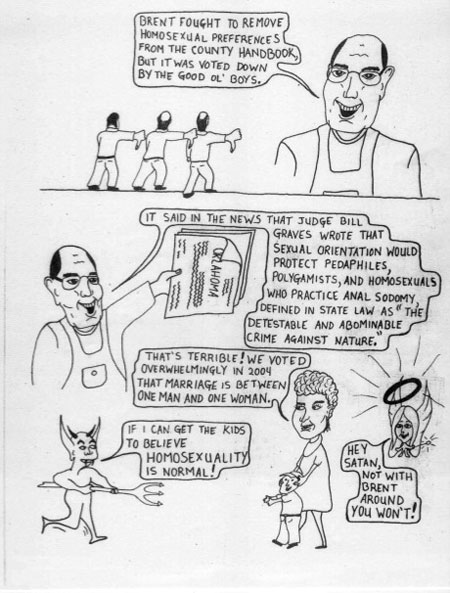 BRENT FOUGHT TO REMOVE
HOMOSEXUAL PREFERENCES
FROM THE COUNTY HANDBOOK,
BUT IT WAS VOTED DOWN
BY THE GOOD OL' BOYS.
IT SAID IN THE NEWS THAT JUDGE BILL
GRAVES WROTE THAT
SEXUAL ORIENTATION WOULD
PROTECT PEDAPHILES,
POLYGAMISTS, AND HOMOSEXUALS
WHO PRACTICE ANAL SODOMY,
DEFINED IN STATE LAW AS "THE
DETESTABLE AND ABOMINABLE
CRIME AGAINST NATURE."
OKLAHOMA
THAT'S TERRIBLE! WE VOTED
OVERWHELMINGLY IN 2004
THAT MARRIAGE IS BETWEEN
ONE MAN AND ONE WOMAN.
IF I CAN GET THE KIDS
TO BELIEVE
HOMOSEXUALITY
IS NORMAL!
HEY
SATAN,
NOT WITH
BRENT
AROUND
YOU WON'T!